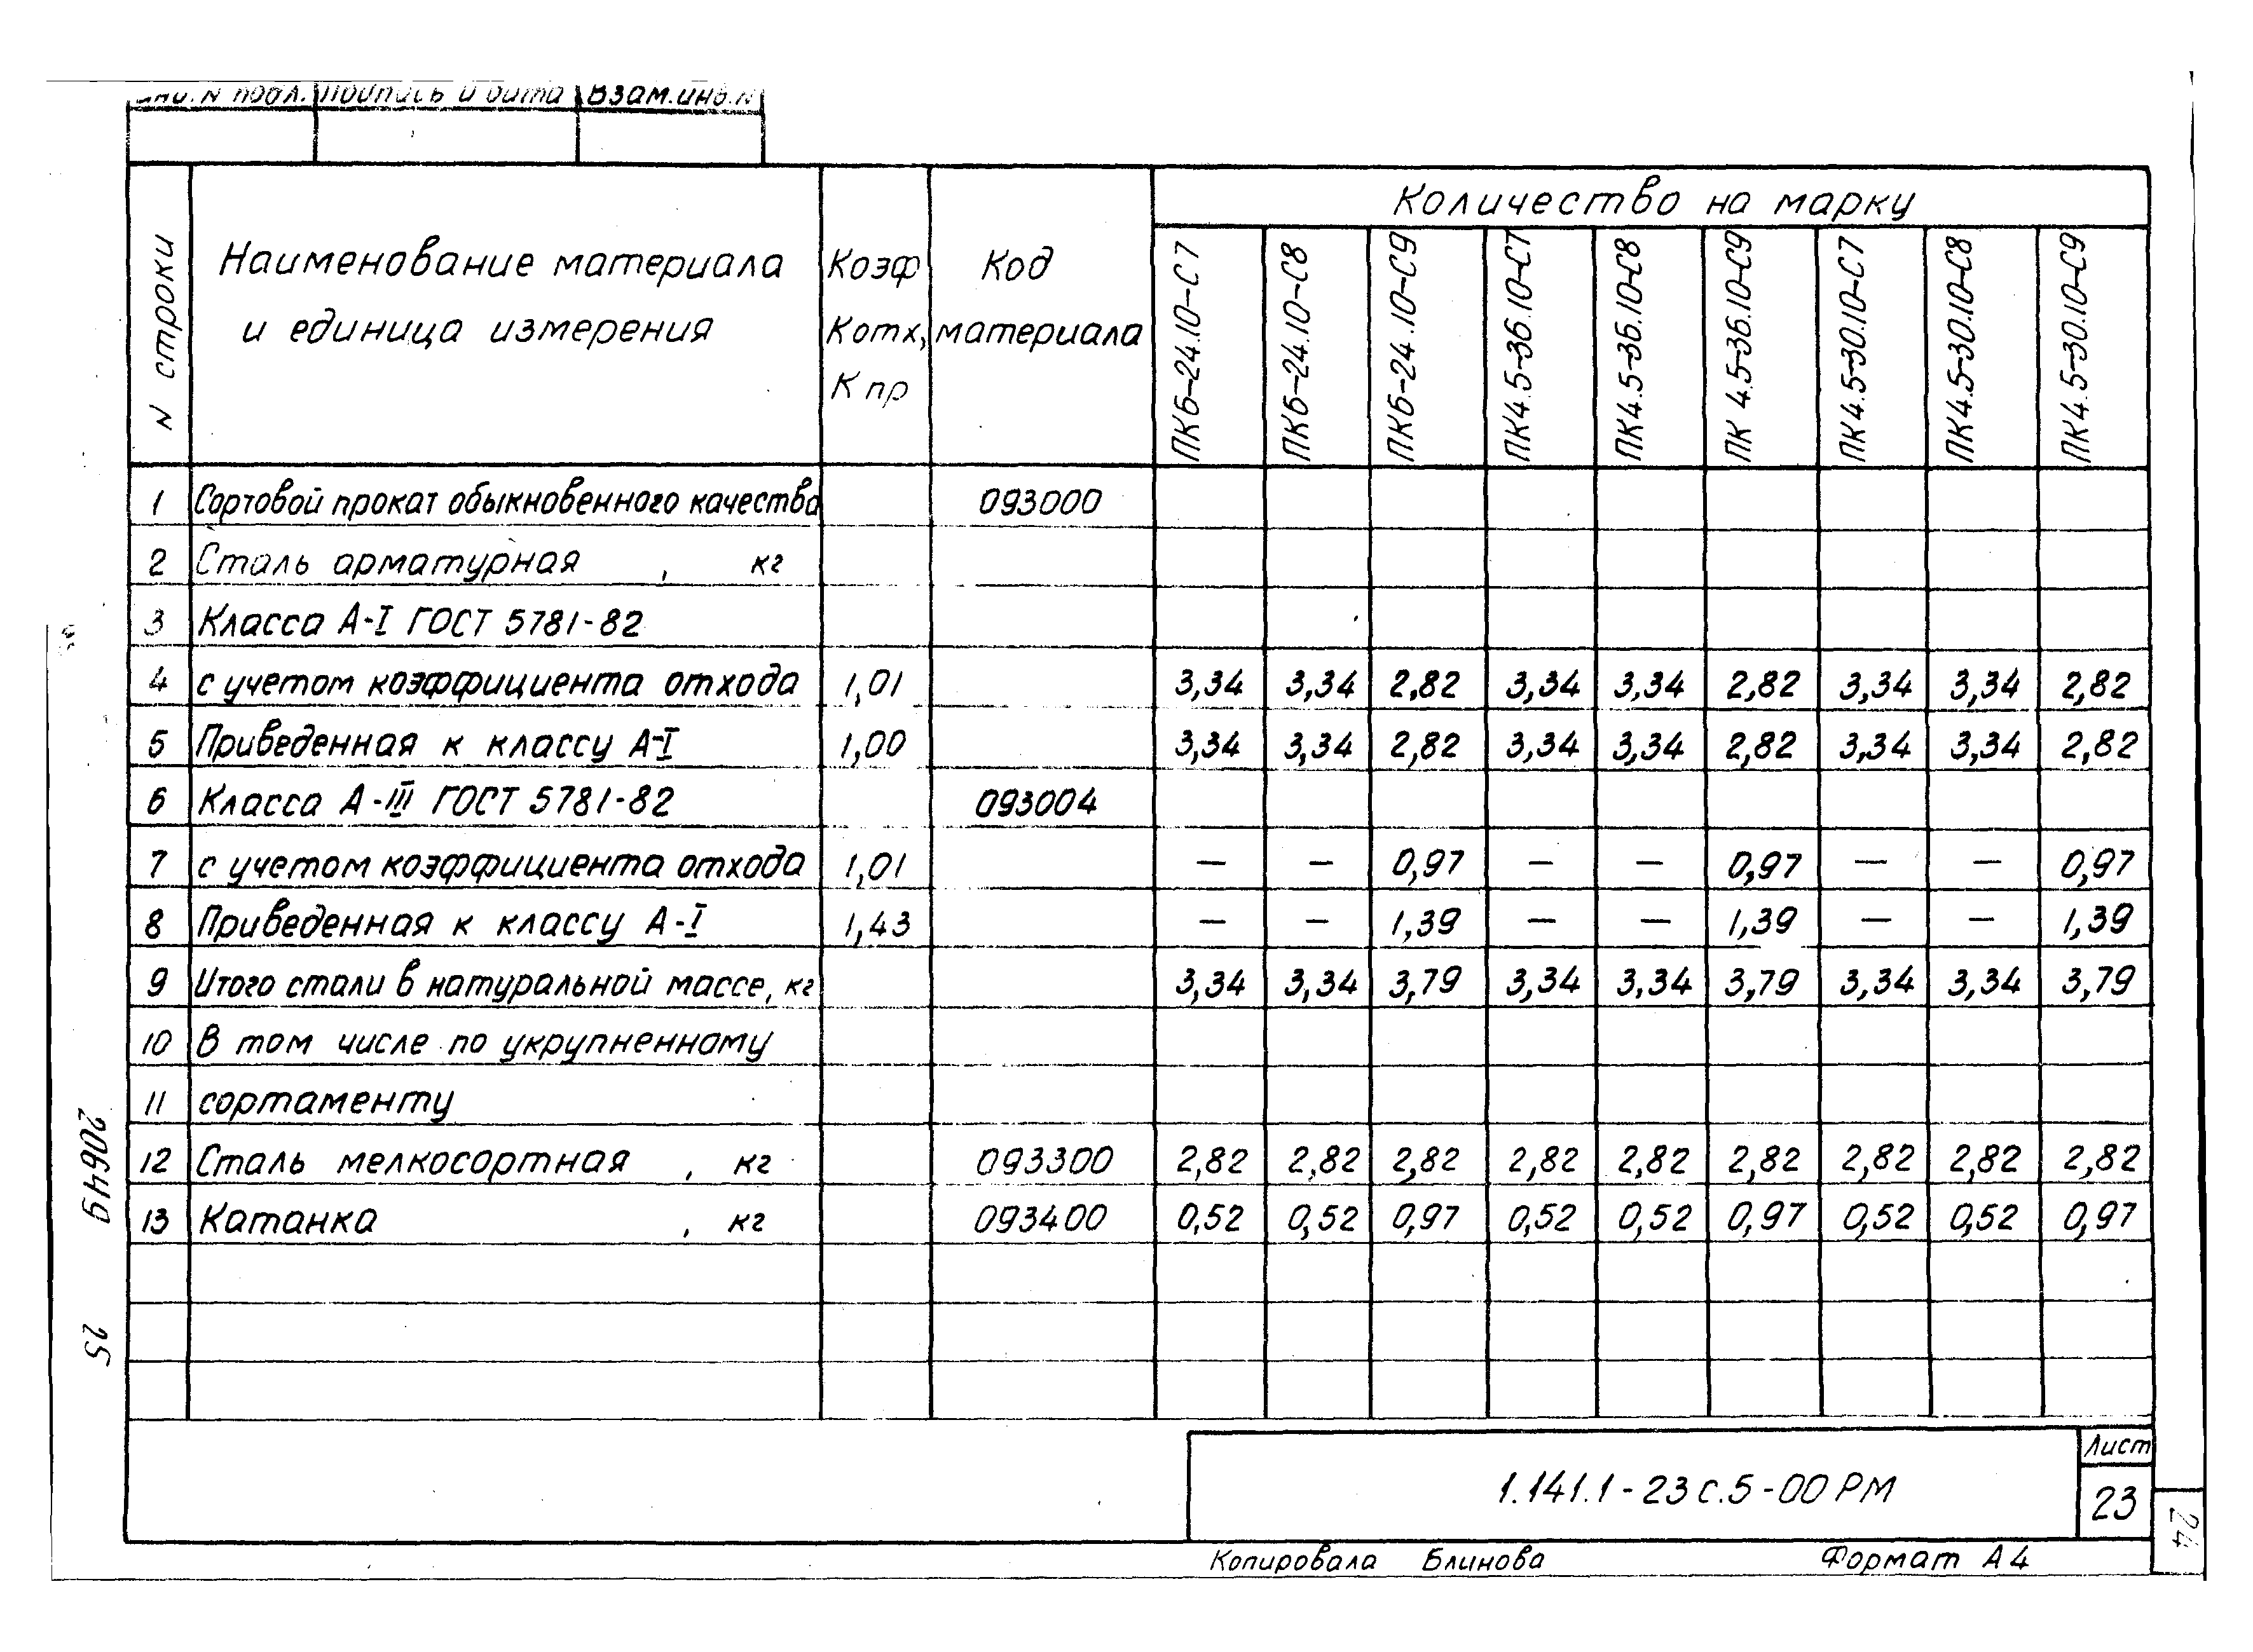 Инв. N подл. Подпись и дата Взам.инв.N
N строки
Наименование материала
и единица измерения
Коэф
Котх,
К пр
Код
материала
Количество на марку
ПК6-24.10-С7 ПК6-24.10-С8 ПК6-24.10-С9 ПК4.5-36.10-С7 ПК4.5-36.10-С8 ПК 4.5-36.10-С9 ПК4.5-30.10-С7 ПК4.5-30.10-С8 ПК4.5-30.10-С9
1 Сортовой прокат обыкновенного качества 093000
2 Сталь арматурная , кг
3 Класса А-I ГОСТ 5781-82
4 с учетом коэффициента отхода 1,01 3,34 3,34 2,82 3,34 3,34 2,82 3,34 3,34 2,82
5 Приведенная к классу А-I 1,00 3,34 3,34 2,82 3,34 3,34 2,82 3,34 3,34 2,82
6 Класса А-III ГОСТ 5781-82 093004
7 с учетом коэффициента отхода 1,01 — — 0,97 — — 0,97 — — 0,97
8 Приведенная к классу А-I 1,43 — — 1,39 — — 1,39 — — 1,39
9 Итого стали в натуральной массе, кг 3,34 3,34 3,79 3,34 3,34 3,79 3,34 3,34 3,79
10 В том числе по укрупненному
11 сортаменту
12 Сталь мелкосортная , кг 093300 2,82 2,82 2,82 2,82 2,82 2,82 2,82 2,82 2,82
13 Катанка , кг 093400 0,52 0,52 0,97 0,52 0,52 0,97 0,52 0,52 0,97
20649 25
1.141.1-23с.5-00РМ
Лист
23
24
Копировала Блинова Формат А4